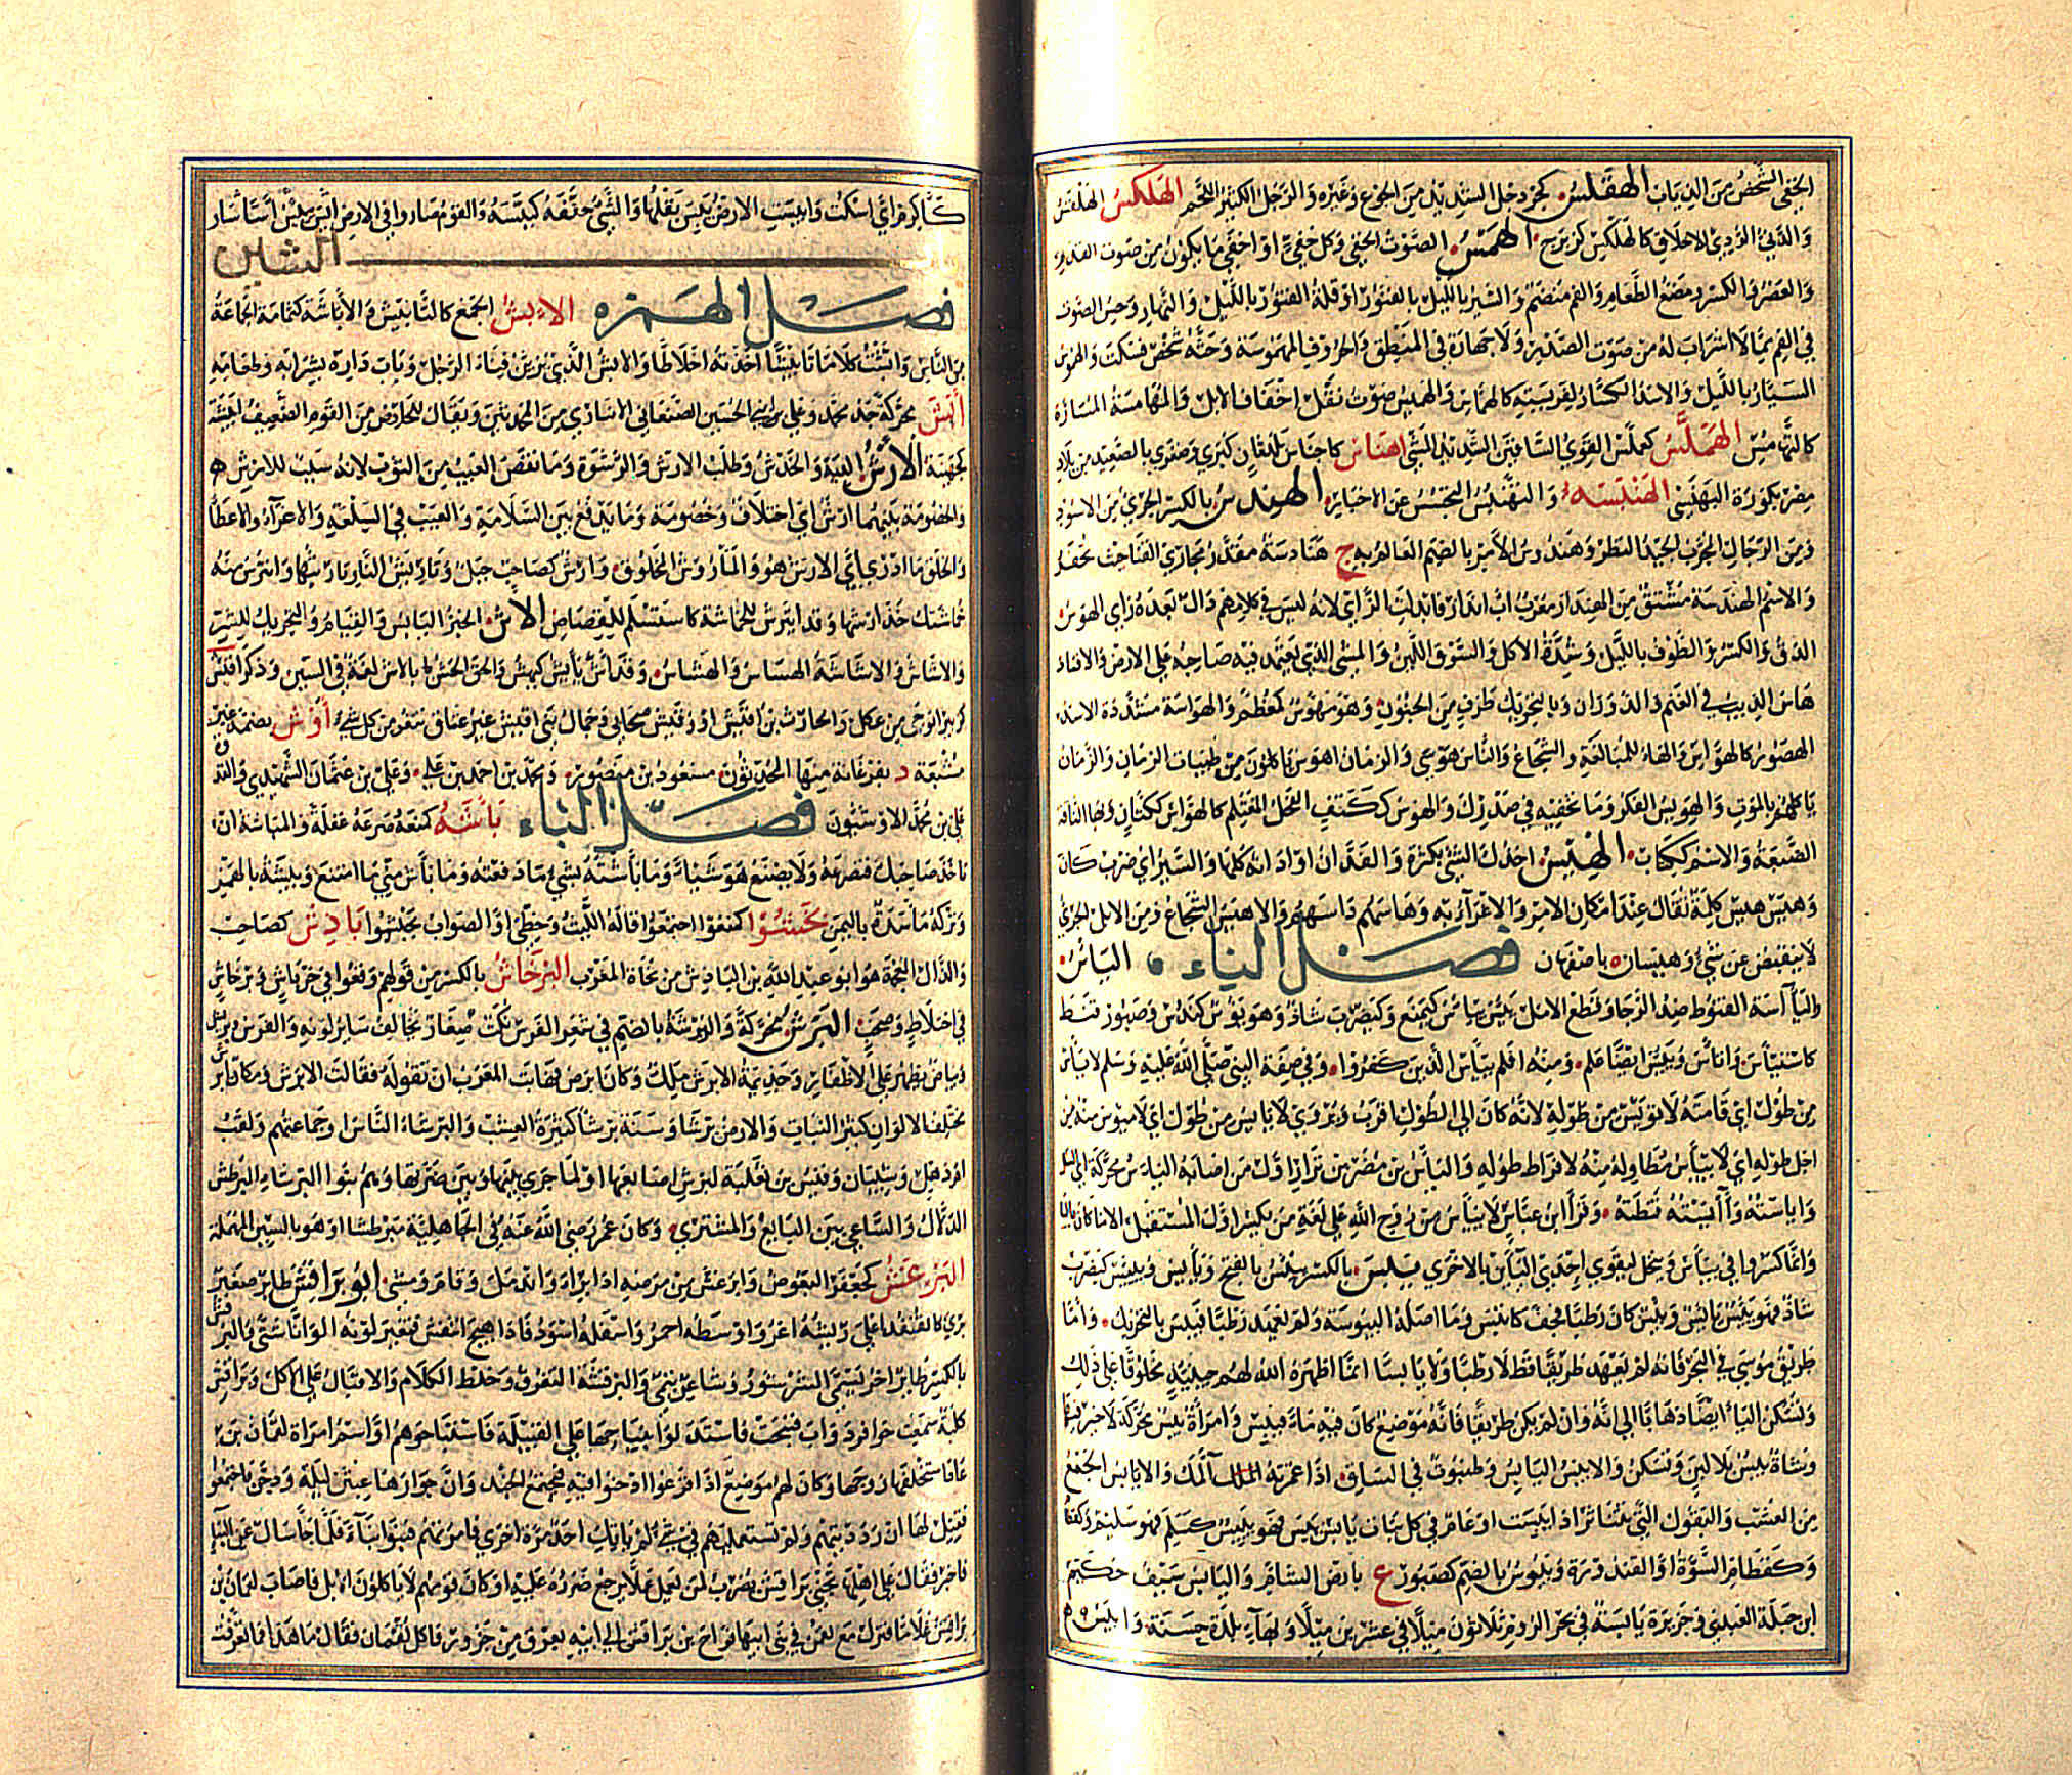 الخفي الشخص من الذياب الهقلس كجردحل الشديد من الجوع وغيره والرجل الكثير اللحم الهلكس الهلقس
والدنيء الرديء الاخلاق كالهلكس كزبرج الهمس الصوت الخفي وكل خفي او اخفي ما يكون من صوت القدم
والعصر والكسر ومضغ الطعام والفم منضم والسير بالليل بالفتور او قلة الفتور بالليل والنهار وحس الصوت
في الفم مما لا اشراب له من صوت الصدر ولا جهارة في المنطق والحروف المهموسة حثه شخص فسكت والهموس
السيار بالليل والاسد الكسار لفريسته كالهماس والهميس صوت نقل اخفاف الابل والمهامسة المسارة
كالتهامس الهملس كعملس القوي الساقين الشديد المشي اهناس كاجناس بلدتان كبرى وصغرى بالصعيد من بلاد
مصر بكورة البهنسي الهنبسة والتهنبس التجسس عن الاخبار الهندس بالكسر الجري من الاسود
ومن الرجال المجرب الجيد النظر وهندوس الامر بالضم العالم به ج هنادسة مقدر مجاري القنا حيث تحفر
والاسم الهندسة مشتق من الهنداز معرب اب انداز فابدلت الزاي لانه ليس في كلامهم دال بعده زاي الهوس
الدق والكسر والطوف بالليل وشدة الاكل والسوق اللين والمشي الذي يعتمد فيه صاحبه على الارض والافساد
هاس الذيب في الغنم والدوران وبالتحريك طرف من الجنون وهو مهوس كمعظم والهواسة مشددة الاسد
الهصور كالهواس والهاء للمبالغة والشجاع والناس هوسى والزمان اهوس ياكلون من طيبات الزمان والزمان
ياكلهم بالموت والهويس الفكر وما تخفيه في صدرك والهوس ككتف الفحل المغتلم كالهواس ككتان وبها الناقة
الضبعة والاسم ككتاب الهيس اخذك الشيء بكثرة والفدان او اداته كلها والسير اي ضرب كان
وهيس هيس كلمة تقال عند امكان الامر والاغراء به وهاسهم داسهم والاهيس الشجاع ومن الابل الجري
لا ينقبض عن شيء وهيسان باصفهان فصل الياء الياس
والياسة القنوط ضد الرجا او قطع الامل يئس يياس كيمنع وكيضرب شاذ وهو يؤس كندس وصبور قنط
كاستياس واتاس ويئس ايضا علم ومنه افلم يياس الذين كفروا وفي صفة النبي صلى الله عليه وسلم لا ياس
من طول اي قامته لا تؤيس من طوله لانه كان الى الطول اقرب ويروى لا يايس من طول اي لا ميؤس منه من
اجل طوله اي لا ييأس مطاوله منه لافراط طوله والياس بن مضر بن نزار اول من اصابه الياس محركة اي السل
واياسته وآيسته قنطته وقرا ابن عباس لا يياس من روح الله على لغة من يكسر اول المستقبل الا ما كان بالياء
وانما كسروا في يياس وييجل لتقوي احدى الياين بالاخرى يبس بالكسر ييبس بالفتح ويابس وييبس كيضرب
شاذ فهو يابس ويبس كان رطبا فجف كاتبس وما اصله اليبوسة ولم يعهد رطبا فيبس بالتحريك واما
طريق موسى في البحر فانه لم يعهد طريقا قط لا رطبا ولا يابسا انما اظهره الله لهم حينيذ مخلوقا على ذلك
وتسكن الياء ايضا ذهابا الى انه وان لم يكن طريقا فانه موضع كان فيه ماء فيبس وامراة يبس محركة لا خير فيها
وشاة يبس بلا لبن وتسكن والايبس اليابس وظنبوب في الساق اذا غمزته المك والايابس الجمع
من العشب والبقول التي تتناثر اذا يبست او عام في كل نبات يابس يبس فهو يبيس كسلم فهو سليم
وكقطام السوءة او الفندورة ويبوس بالضم كصبور ع بارض الشام واليابس سيف حكيم
ابن جبلة العبدي وجزيرة يابسة في بحر الروم ثلاثون ميلا في عشرين ميلا وبها بلدة حسنة وايبس
كاكرم اي اسكت وايبست الارض يبس بقلها والشيء جففه كيبسه والقوم صاروا في الارض
الشين
فصل الهمزه الابش الجمع كالتابيش والاباشة كثمامة الجماعة
من الناس وابشت كلاما تابيشا اخذته اخلاطا والابش الذي يزين فناء الرجل وباب داره بشرابه وطعامه
ابش محركة جد محمد وعلي ابني الحسين الصنعاني الابناوي من المحدثين ويقال للحارض من القوم الضعيف ابيشة
كجهينة الارش الدية والخدش وطلب الارش والرشوة وما نقص العيب من الثوب لانه سبب للارش
والخصومة بينهما ارش اي اختلاف وخصومة وما يدفع بين السلامة والعيب في السلعة والاغراء والاعطاء
والخلق ما ادري اي الارش هو والمأروش المخلوق وارش كصاحب جبل وتاريش النار تاريثها وايترش منه
خماشتك خذ ارشها وقد ايترش للخماشة كاستسلم للقصاص الاش الخبز اليابس والقيام والتحريك للشر
والاشاش والاشاشة الهشاس والهشاش وقد اش ياش كهش والحق الحش بالاش لغة في السين وذكر اقيش
كزبير ابو حي من عكل والحارث بن اقيش او وقيش صحابي وجمال بني اقيش غير عتاق تنفر من كل شيء اوش بضمة غير
مشبعة د بفرغانة منها المحدثون مسعود بن منصور ومحمد بن احمد بن علي وعلي بن عثمان الشهيدي
علي بن محمد الاوشيون فصل الباء باشه كمنعه صرعه غفلة والمباشة ان
تاخذ صاحبك فتصرعه ولا يصنع هو شيا وما باشته بشيء ما دفعته وما باش مني ما امتنع وبيشة بالهمز
وتركه ماسدة باليمن بخشوا كمنعوا اجتمعوا قاله الليث وخطي او الصواب تحبشوا بادش كصاحب
والدال معجمة هو ابو عبد الله بن الباذش من نحاة المغرب البرخاش بالكسر من قولهم وقعوا في خرباش وبرخاش
في اختلاط وصخب البرش محركة والبرشة بالضم في شعر الفرس نكت صغار تخالف ساير لونه والفرس ابرش
وبياض يظهر على الاظفار وجذيمة الابرش ملك وكان ابرص فهابت العرب ان تقوله فقالت الابرش ومكان ابرش
مختلف الالوان كثير النبات والارض برشا وسنة برشا كثيرة العشب والبرشاء الناس او جماعتهم ولقب
ام ذهل وشيبان وقيس بن ثعلبة لبرش اصابها او لما جرى بينها وبين ضرتها وهم بنوا البرشاء البرطش
الدلال والساعي بين البايع والمشتري وكان عمر رضي الله عنه في الجاهلية مبرطشا او هو بالسين المهملة
البرغش كجعفر البعوض وابرغش من مرضه اذا برا واندمل وقام ومشى ابو براقش طاير صغير
بري كالقنفذ اعلى ريشه اغر واوسطه احمر واسفله اسود فاذا هيج انتفش فتغير لونه الوانا شتى والبرقش
بالكسر طاير اخر يسمى الشرشور وشاعر تيمي والبرقشة التفرق وخلط الكلام والاقبال على الاكل وبراقش
كلبة سمعت حوافر دواب فنبحت فاستدلوا بنباحها على القبيلة فاستباحوهم او اسم امراة لقمان بن
عاد استخلفها زوجها وكان لهم موضع اذا فزعوا ادخنوا فيه فيجتمع الجند وان جواريها عبثن ليلة ودخن فاجتمعوا
فقيل لها ان رددتيهم ولم تستعمليهم في شيء لم ياتك احد مرة اخرى فامرتهم فبنوا بناء فلما جا سال عن البناء
فاخبر فقال على اهلها تجني براقش يضرب لمن يعمل عملا يرجع ضرره عليه او كان قومهم لا ياكلون الابل فاصاب لقمان من
براقش غلاما فنزل مع لقمن في بني ابيها فراح بن براقش الى ابيه بعرق من جزور فاكل لقمان فقال ما هذا فما تعرقت